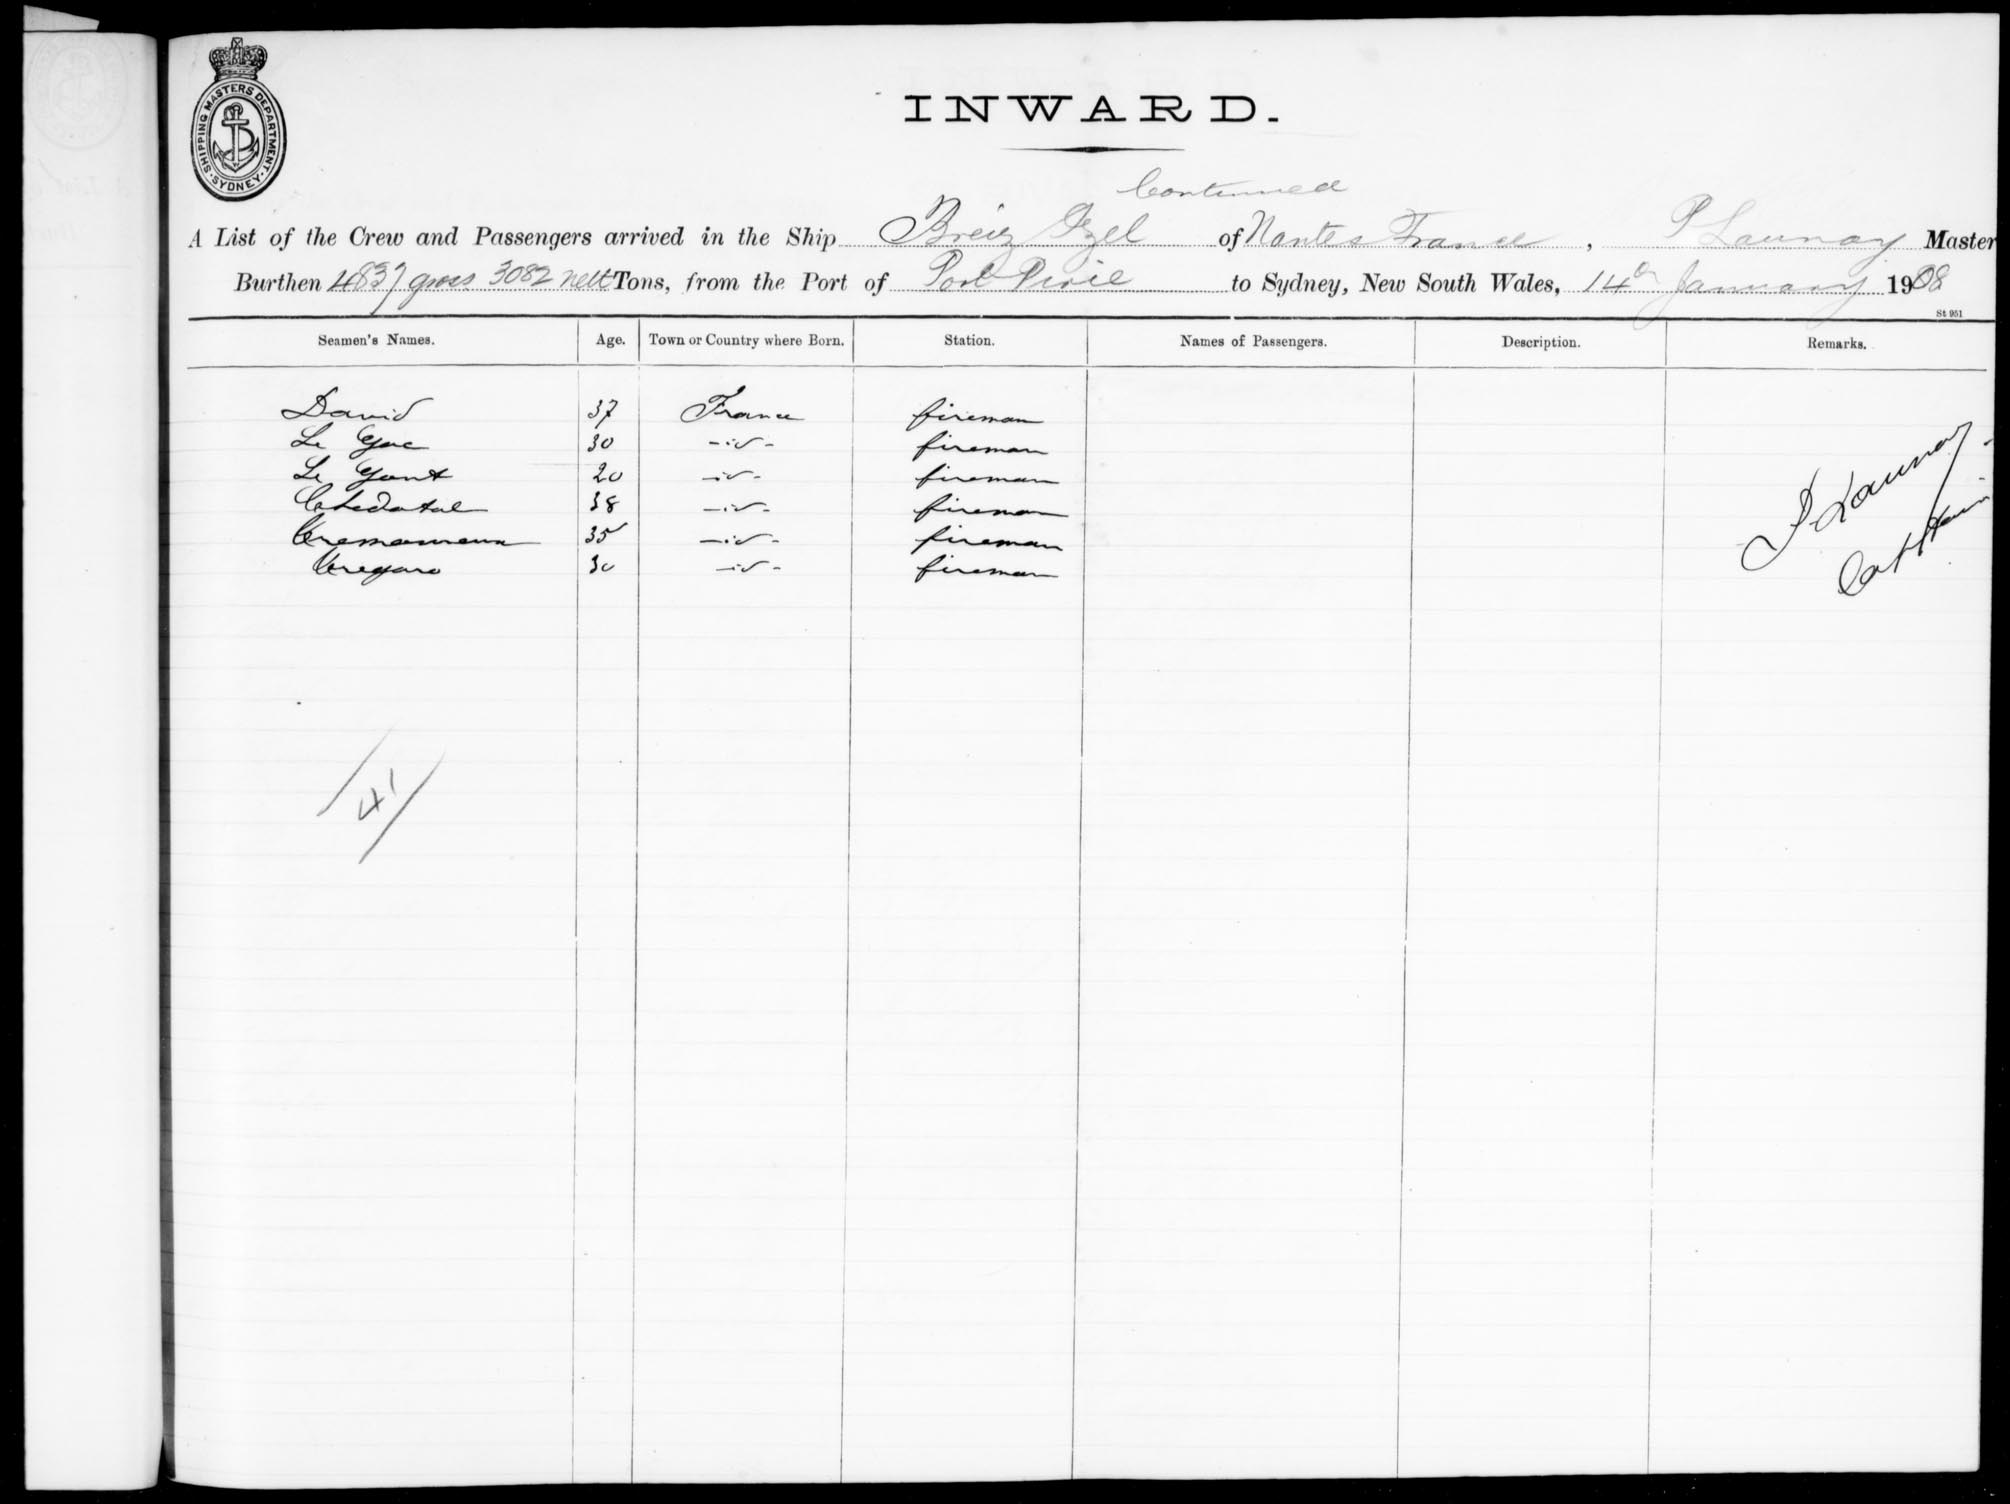 SHIPPING MASTERS DEPARTMENT. SYDNEY.
INWARD.
Continued
A List of the Crew and Passengers arrived in the Ship Breiz Izel of Nantes France, P Launay Master
Burthen 4837 gross 3082 nett Tons, from the Port of Port Pirie to Sydney, New South Wales, 14th January 1908
St 951
Seamen's Names. Age. Town or Country where Born. Station. Names of Passengers. Description. Remarks.
David 37 France fireman
Le Gac 30 -id- fireman
Le Gont 20 -id- fireman
38 -id- fireman
35 -id- fireman
30 -id- fireman
P Launay
41